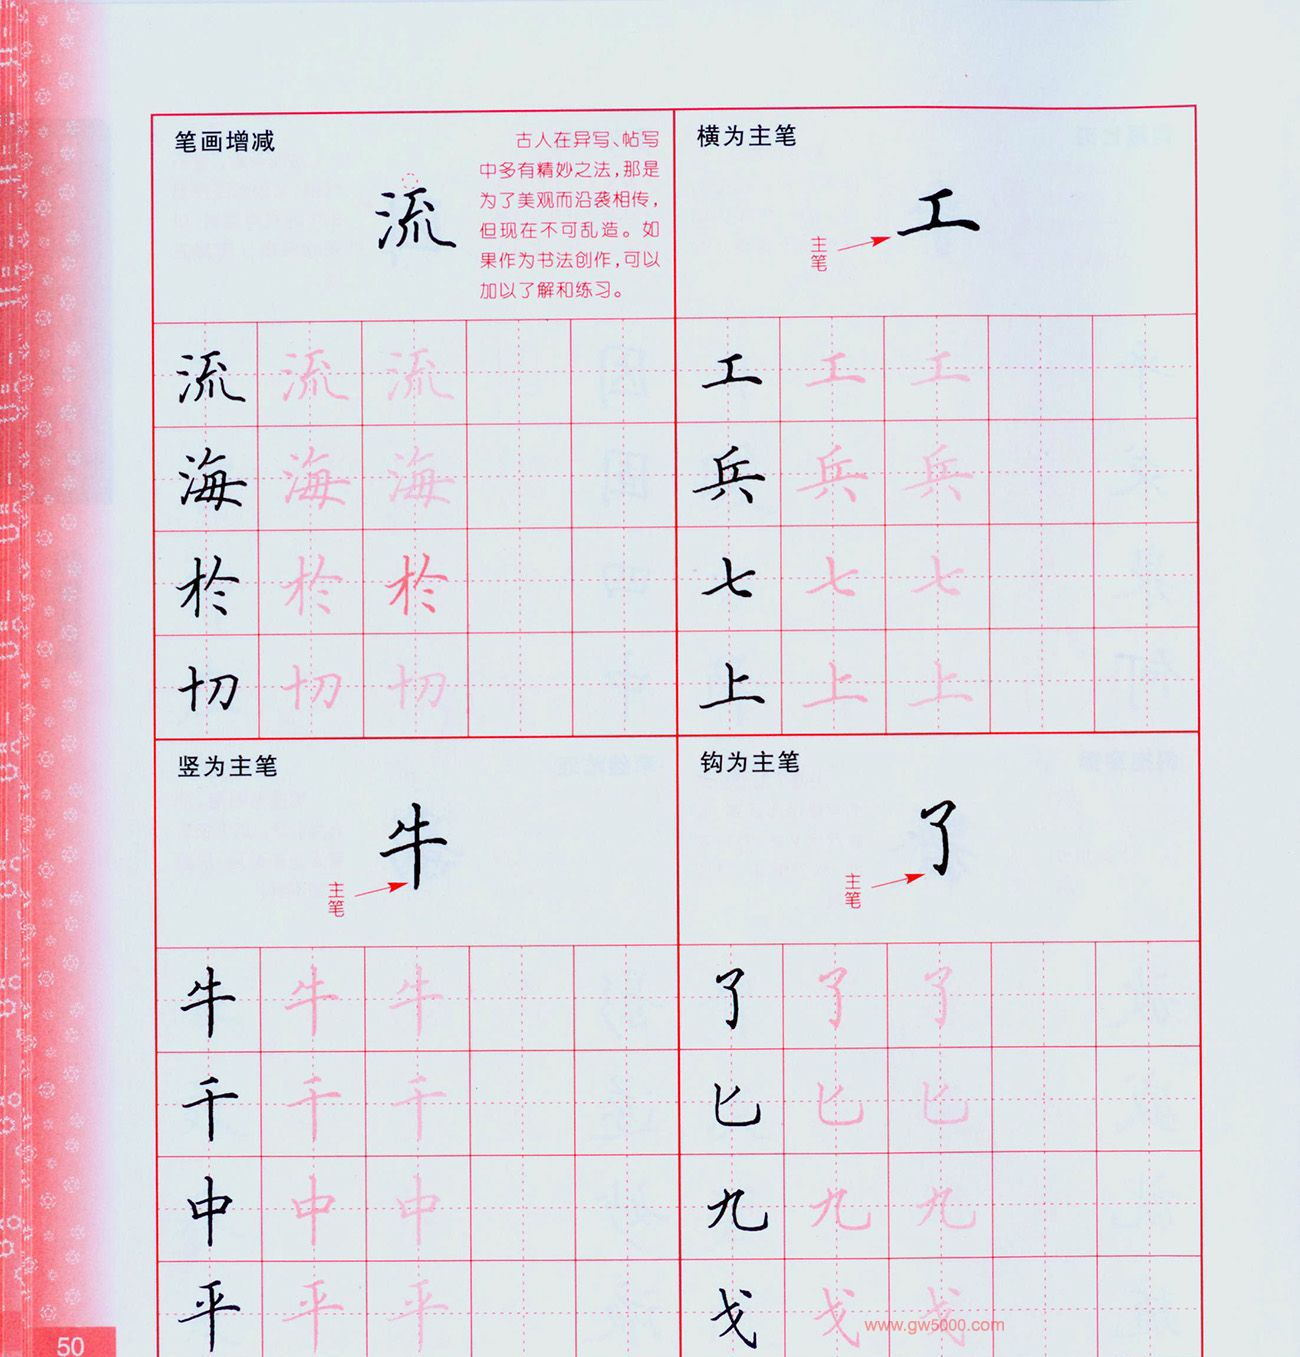 笔画增减
流
古人在异写、帖写
中多有精妙之法,那是
为了美观而沿袭相传,
但现在不可乱造。如
果作为书法创作,可以
加以了解和练习。
流 流 流
海 海 海
於 於 於
切 切 切
横为主笔
工
主笔
工 工 工
兵 兵 兵
七 七 七
上 上 上
竖为主笔
牛
主笔
牛 牛 牛
千 千 千
中 中 中
平 平 平
钩为主笔
了
主笔
了 了 了
匕 匕 匕
九 九 九
戈 戈 戈
www.gw5000.com
50